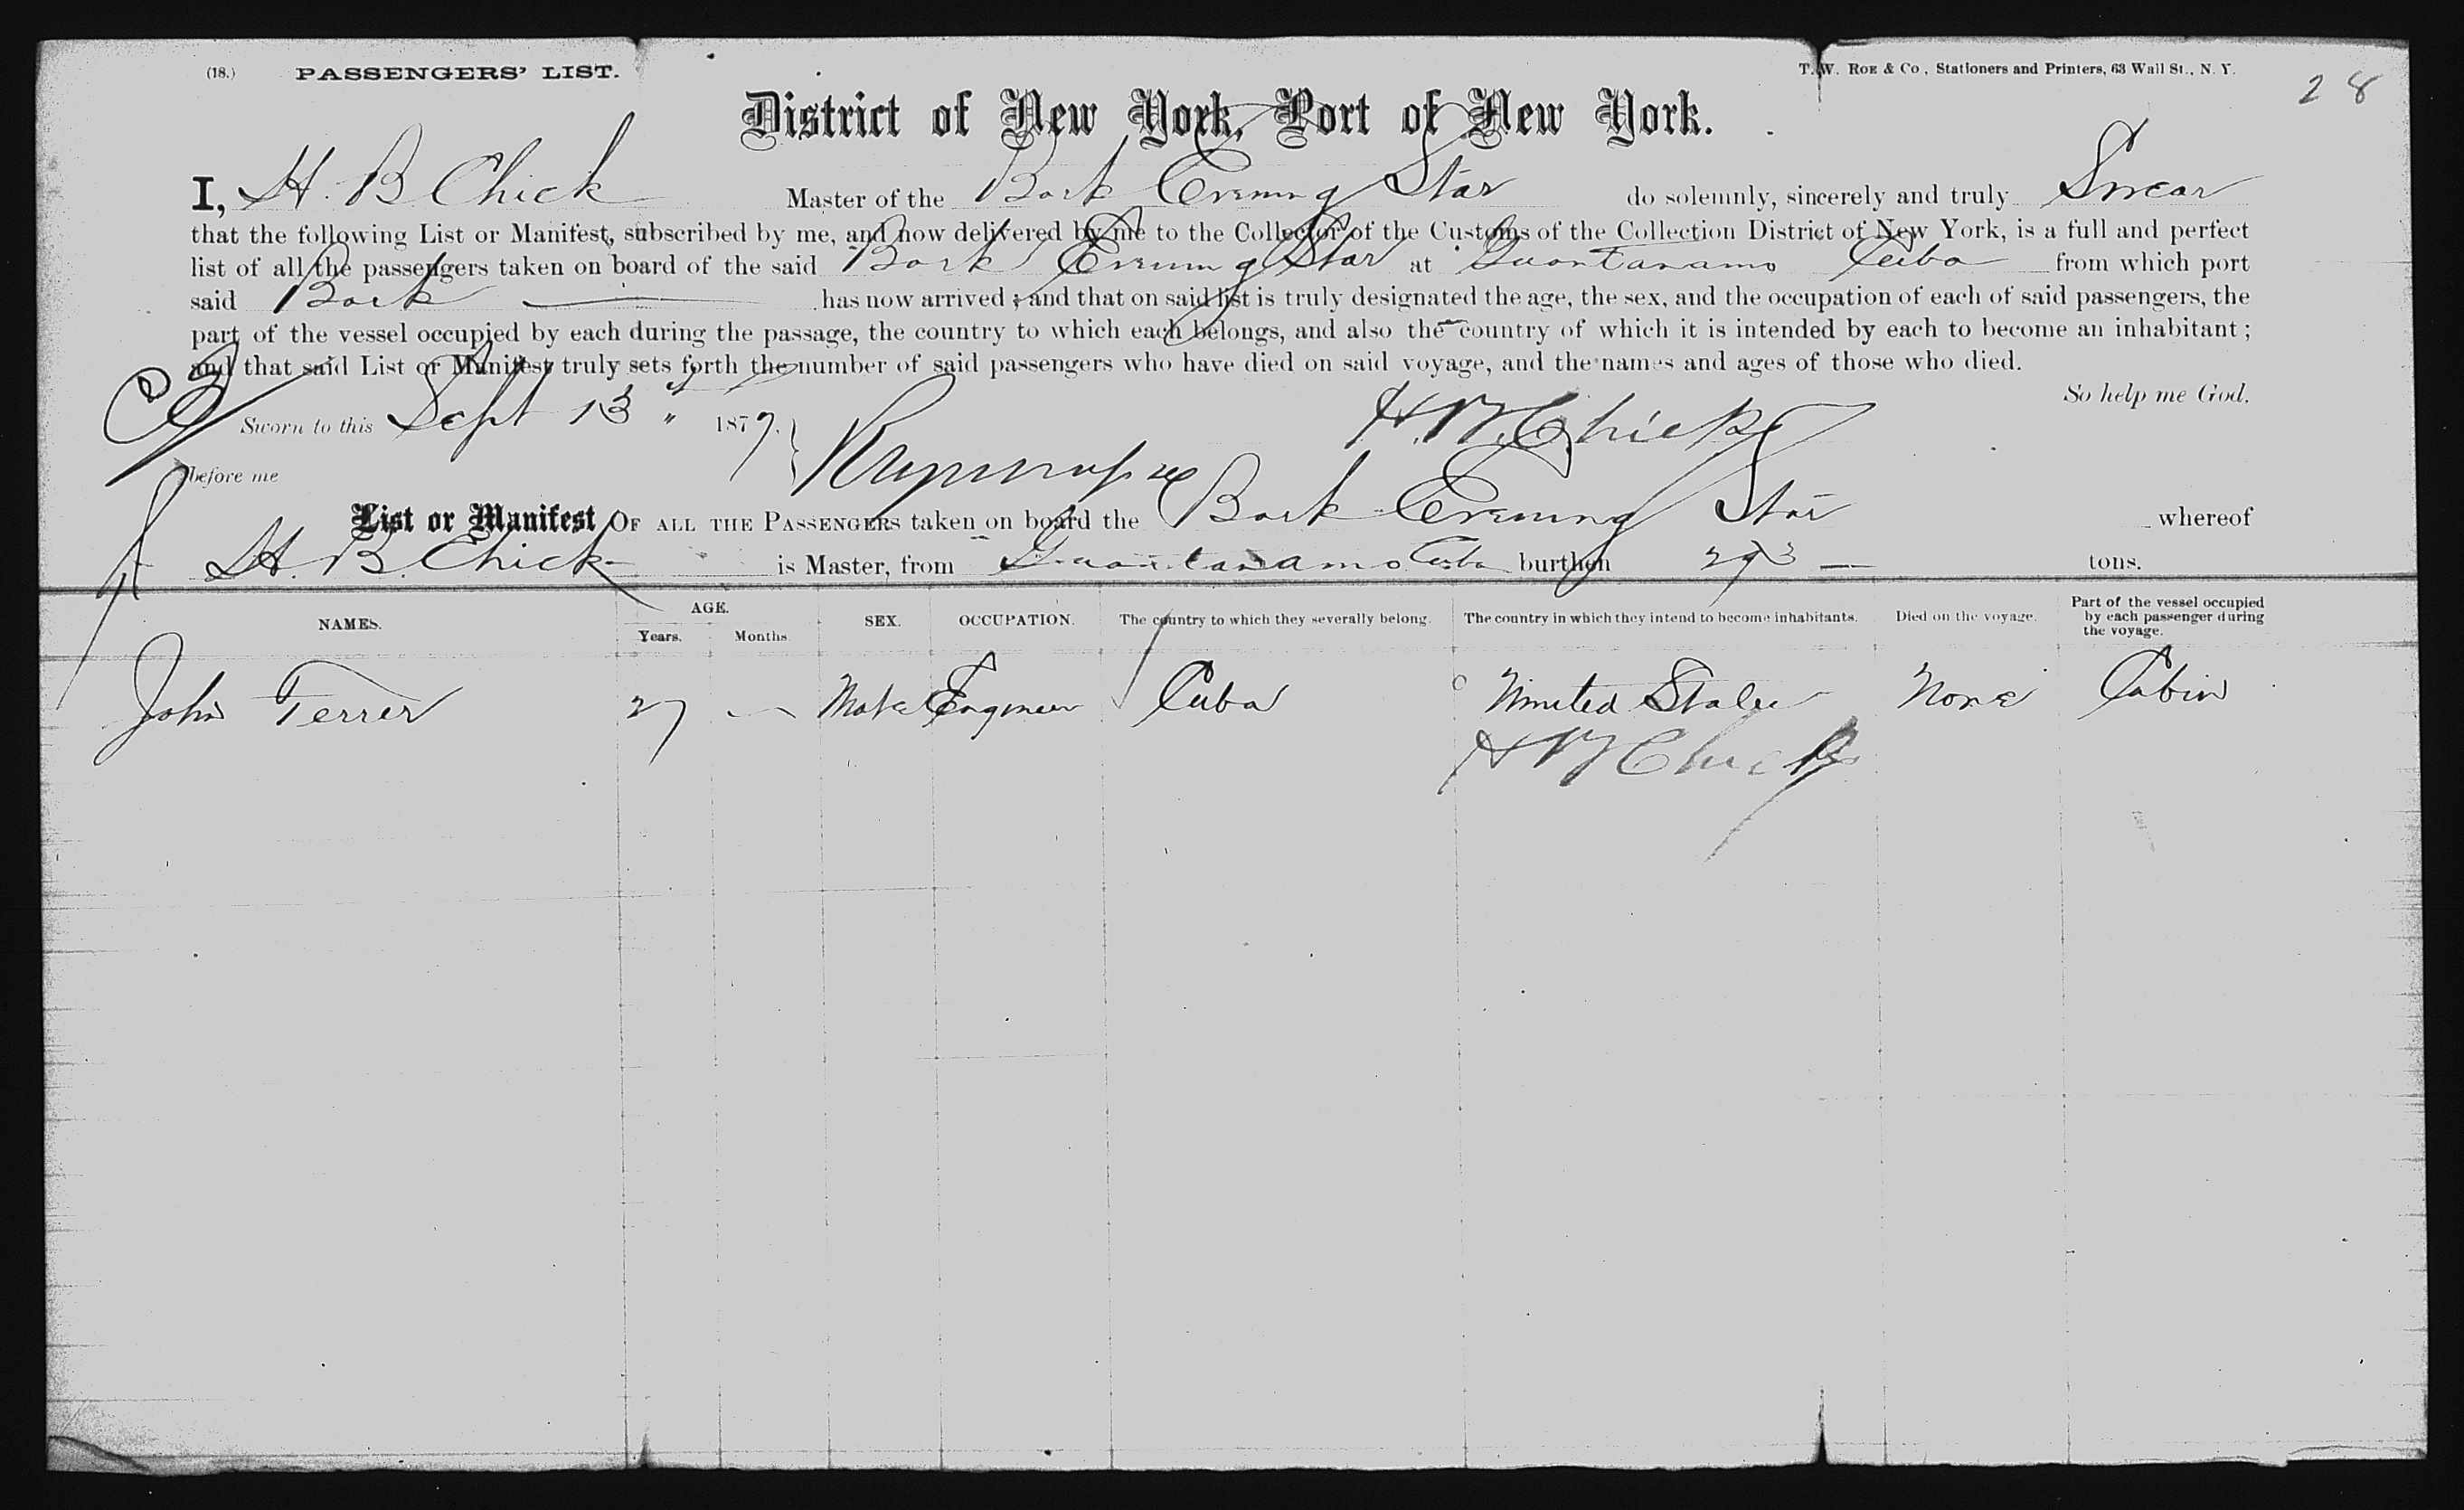 (18.) PASSENGERS' LIST. T. W. ROE & CO., Stationers and Printers, 63 Wall St., N. Y. 28
District of New York, Port of New York.
I, H. B. Chick Master of the Bark Evening Star do solemnly, sincerely and truly Swear
that the following List or Manifest, subscribed by me, and now delivered by me to the Collector of the Customs of the Collection District of New York, is a full and perfect
list of all the passengers taken on board of the said Bark Evening Star at Guantanamo Cuba from which port
said Bark has now arrived; and that on said list is truly designated the age, the sex, and the occupation of each of said passengers, the
part of the vessel occupied by each during the passage, the country to which each belongs, and also the country of which it is intended by each to become an inhabitant;
and that said List or Manifest truly sets forth the number of said passengers who have died on said voyage, and the names and ages of those who died.
So help me God.
Sworn to this Sept 13th 1879. H. B. Chick
before me
List or Manifest OF ALL THE PASSENGERS taken on board the Bark Evening Star whereof
H. B. Chick is Master, from Guantanamo Cuba burthen 293 — tons.
NAMES. AGE. Years. Months. SEX. OCCUPATION. The country to which they severally belong. The country in which they intend to become inhabitants. Died on the voyage. Part of the vessel occupied by each passenger during the voyage.
John Ferrer 27 — Male Engineer Cuba United States None Cabin
H B Chick